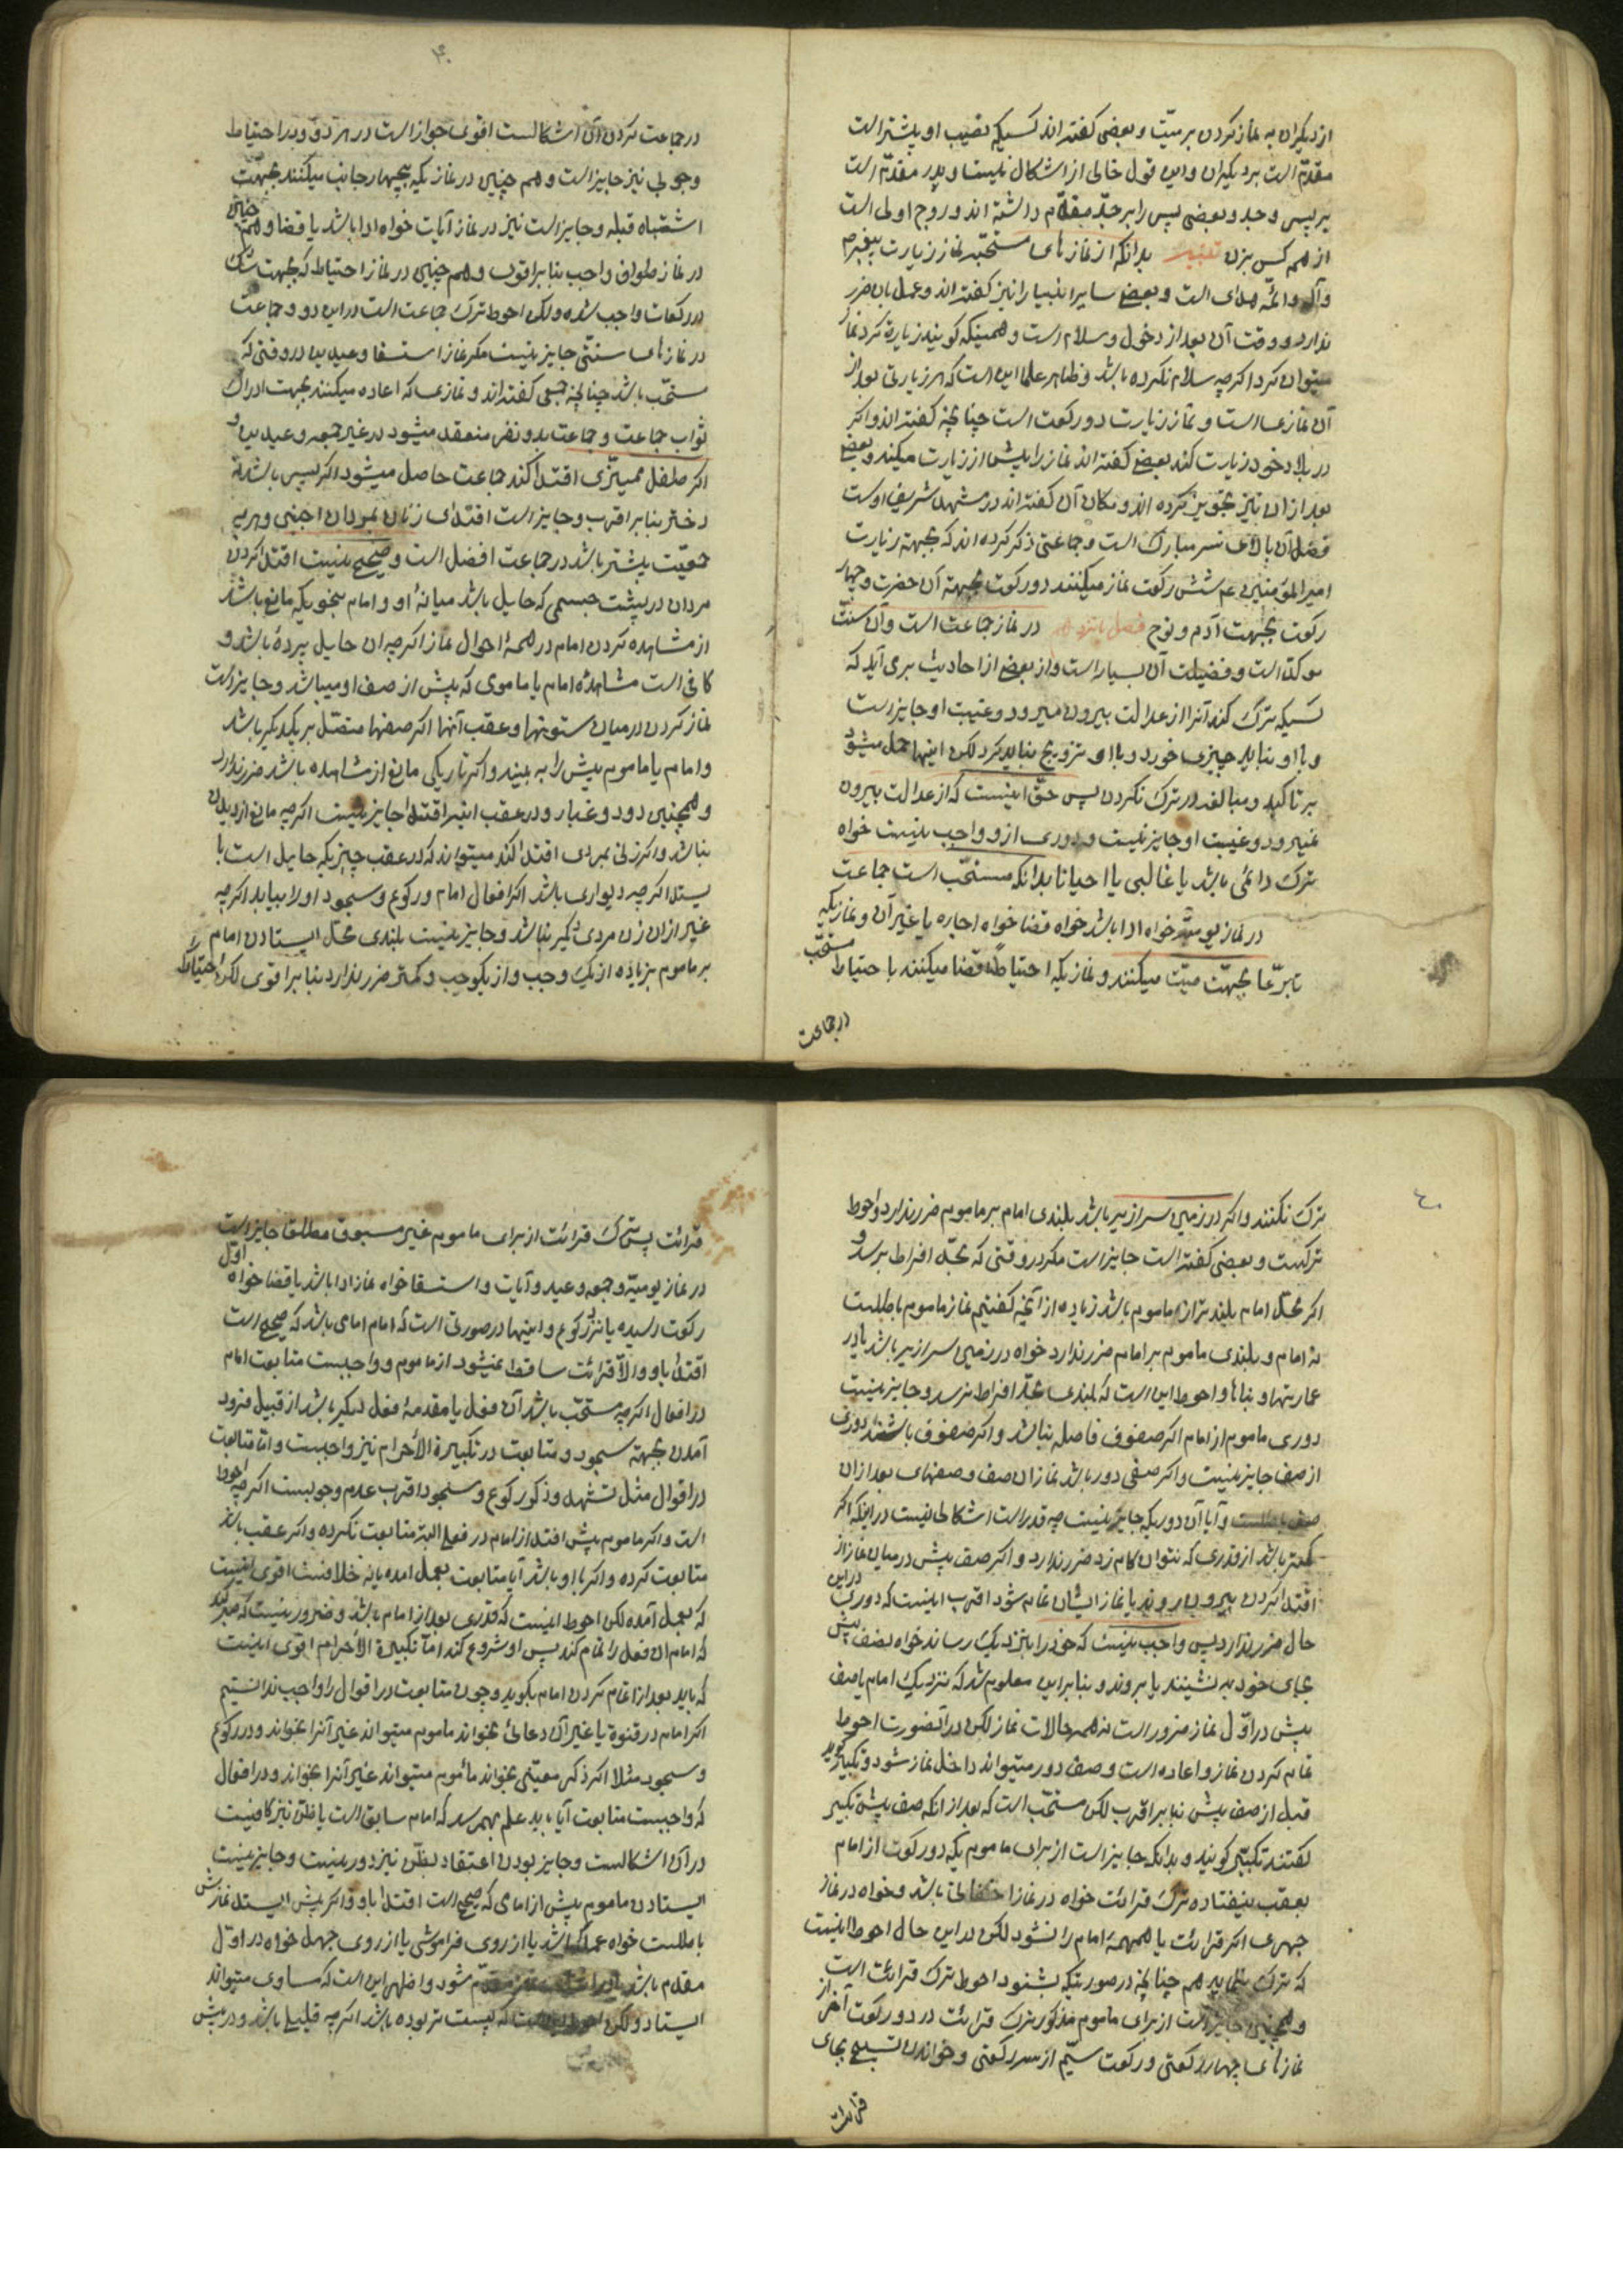 از دیگران به نماز کردن بر میّت و بعضی گفته‌اند کسیکه نصیب او بیشتر است
مقدّم است بر دیگران و این قول خالی از اشکال نیست و پدر مقدّم است
بر پسر و جد و بعضی پسر را بر جدّ مقدّم داشته‌اند و زوج اولی است
از همه کس بزن تنبیه بدانکه از نمازهای مستحبّه نماز زیارت پیغمبر ص
و آل و ائمّه هدی است و بعضی سایر انبیا را نیز گفته‌اند و عمل بان ضرر
ندارد و وقت آن بعد از دخول و سلام است و همینکه گویند زیارة کرد نماز
میتوان کرد اگرچه سلام نکرده باشد و ظاهر علما این است که هر زیارتی بعد از
آن نمازی است و نماز زیارت دو رکعت است چنانچه گفته‌اند و اگر
در بلاد خود زیارت کند بعضی گفته‌اند نماز را پیش از زیارت میکند و بعضی
بعد از ان نیز تجویز کرده‌اند و مکان آن گفته‌اند در مشهد شریف اوست
و فضل آن بالای سر مبارک است و جماعتی ذکر کرده‌اند که بجهة زیارت
امیر المؤمنین عم شش رکعت نماز میکنند دو رکعت بجهة آن حضرت و چهار
رکعت بجهت آدم و نوح فصل پانزدهم در نماز جماعت است و آن سنّت
موکّد است و فضیلت آن بسیار است و از بعضی از احادیث بر می‌آید که
کسیکه ترک کند آنرا از عدالت بیرون میرود و غیبت او جایز است
و با او نباید چیزی خورد و با او تزویج نباید کرد لکن اینها حمل میشود
بر تاکید و مبالغه در ترک نکردن پس حقّ اینست که از عدالت بیرون
نمیرود و غیبت او جایز نیست و دوری از و واجب نیست خواه
ترک دائمی باشد یا غالبی یا احیانا بدانکه مستحبّ است جماعت
در نماز یومیّه خواه ادا باشد خواه قضا خواه اجاره یا غیر آن و نمازیکه
تبرّعا بجهت میّت میکنند و نمازیکه احتیاطاً قضا میکنند با احتیاط مستحبّ
در جماعت
۴۰
در جماعت کردن آن اشکالست اقوی جواز است در هر دو و در احتیاط
وجوبی نیز جایز است و هم چنین در نمازیکه بچهار جانب میکنند بجهت
اشتباه قبله و جایز است نیز در نماز آیات خواه ادا باشد یا قضا و هم چنین
در نماز طواف واجب بنا بر اقوی و هم چنین در نماز احتیاط که بجهت شک
در رکعات واجب شده ولکن احوط ترک جماعت است در این دو و جماعت
در نمازهای سنّتی جایز نیست مگر نماز استسقا و عیدین در وقتی که
مستحبّ باشد چنانچه جمعی گفته‌اند و نمازی که اعاده میکنند بجهت ادراک
ثواب جماعت و جماعت بدو نفر منعقد میشود در غیر جمعه و عیدین و
اگر طفل ممیّزی اقتدا کند جماعت حاصل میشود اگر پسر باشد نه
دختر بنا بر اقرب و جایز است اقتدای زنان بمردان اجنبی و هر چه
جمعیّت بیشتر باشد در جماعت افضل است و صحیح نیست اقتدا کردن
مردان در پشت جسمی که حایل باشد میانهٔ او و امام بنحویکه مانع باشد
از مشاهده کردن امام در همهٔ احوال نماز اگرچه ان حایل پردهٔ باشد و
کافی است مشاهدهٔ امام یا مامومی که پیش از صف او میباشد و جایز است
نماز کردن در میان ستونها و عقب آنها اگر صفها متصّل بر یکدیگر باشد
و امام یا ماموم پیش را به بیند و اگر تاریکی مانع از مشاهده باشد ضرر ندارد
و همچنین دود و غبار و در عقب اینها اقتدا جایز نیست اگرچه مانع از دیدن
نباشد و اگر زنی بمردی اقتدا کند میتواند که در عقب چیزیکه حایل است با
یستد اگرچه دیواری باشد اگر افعال امام و رکوع و سجود او را بیابد اگرچه
غیر از ان زن مردی دیگر نباشد و جایز نیست بلندی محّل ایستادن امام
بر ماموم بزیاده از یک وجب و از یکوجب و کمتر ضرر ندارد بنا بر اقوی لکن احتیاط را
۴۰
ترک نکنند و اگر در زمین سرازیر باشد بلندی امام بر ماموم ضرر ندارد و احوط
ترکست و بعضی گفته است جایز است مگر در وقتی که بحدّ افراط برسد و
اگر محّل امام بلندتر از ماموم باشد زیاده از آنچه گفتیم نماز ماموم باطلست
نه امام و بلندی ماموم بر امام ضرر ندارد خواه در زمین سرازیر باشد یا در
عمارتها و بناها و احوط این است که بلندی بحدّ افراط نرسد و جایز نیست
دوری ماموم از امام اگر صفوف فاصله نباشد و اگر صفوف باشند دوری
از صف جایز نیست و اگر صفی دور باشد نماز ان صف و صفهای بعد از ان
صف باطلست و آیا آن دوریکه جایز نیست چه قدر است اشکالی نیست در اینکه اگر
کمتر باشد از قدری که نتوان کام زد ضرر ندارد و اگر صف پیش در میان نماز از
اقتدا کردن بیرون روند یا نماز ایشان تمام شود اقرب اینست که دوری در این
حال ضرر ندارد پس واجب نیست که خود را بنزدیک رساند خواه بصف پیش
بجای خود به نشینند یا بروند و بنا بر این معلوم شد که نزدیک امام یا صف
پیش در اوّل نماز ضرور است نه همه حالات نماز لکن در آنصورت احوط
تمام کردن نماز و اعاده است و صف دور میتواند داخل نماز شود و تکبیر گوید
قبل از صف پیش بنا بر اقرب لکن مستحّب است که بعد از انکه صف پیش تکبیر
گفتند تکبیر گویند و بدانکه جایز است از برای مامومیکه دو رکعت از امام
بعقب نیفتاده ترک قرائت خواه در نماز اخفاتی باشد و خواه در نماز
جهری اگر قرائت یا همهمهٔ امام را نشنود لکن در این حال احوط اینست
که ترک ننماید هم چنانچه در صورتیکه بشنود احوط ترک قرائت است
و همچنین جایز است از برای ماموم مذکور ترک قرائت در دو رکعت آخر از
نمازهای چهار رکعتی و رکعت سیّم از سه رکعتی و خواندن تسبیح بجای
قرائت
قرائت پس ترک قرائت از برای ماموم غیر مسبوق مطلقا جایز است
در نماز یومیّه و جمعه و عید و آیات و استسقا خواه نماز ادا باشد یا قضا خواه اوّل
رکعت رسیده یا نزد رکوع و اینها در صورتی است که امام امامی باشد که صحیح است
اقتدا باو و الّا قرائت ساقط نمیشود از ماموم و واجبست متابعت امام
در افعال اگرچه مستحّب باشد آن فعل یا مقدمهٔ فعل دیگر باشد از قبیل فرود
آمدن بجهة سجود و متابعت در تکبیرة الأحرام نیز واجبست و امّا متابعت
در اقوال مثل تشهد و ذکر رکوع و سجود اقرب عدم وجوبست اگرچه احوط
است و اگر ماموم پیش افتد از امام در فعلی البته متابعت نکرده و اگر عقب باشد
متابعت کرده و اگر با او باشد آیا متابعت بعمل امده یا نه خلافست اقوی اینست
که بعمل آمده لکن احوط اینست که قدری بعد از امام باشد و ضرور نیست که صبر کند
که امام ان فعل را تمام کند پس او شروع کند امّا تکبیرة الأحرام اقوی اینست
که باید بعد از تمام کردن امام بگوید و چون متابعت در اقوال را واجب ندانستیم
اگر امام در قنوة یا غیر آن دعائی بخواند ماموم میتواند غیر آنرا بخواند و در رکوع
و سجود مثلا اگر ذکر معیّنی بخواند مأموم میتواند غیر آنرا بخواند و در افعال
که واجبست متابعت آیا باید علم بهم رسد که امام سابق است یا ظنّ نیز کافیست
در آن اشکالست و جایز بودن اعتقاد بظنّ نیز دور نیست و جایز نیست
ایستادن ماموم پیش از امامی که صحیح است اقتدا باو و اگر پیش ایستد نمازش
باطلست خواه عمداً باشد یا از روی فراموشی یا از روی جهل خواه در اوّل
مقدم باشد یا در اثنای نماز مقدّم شود و اظهر این است که مساوی میتواند
ایستاد ولکن احوط اینست که پست تر بوده باشد اگرچه قلیلی باشد و در پیش